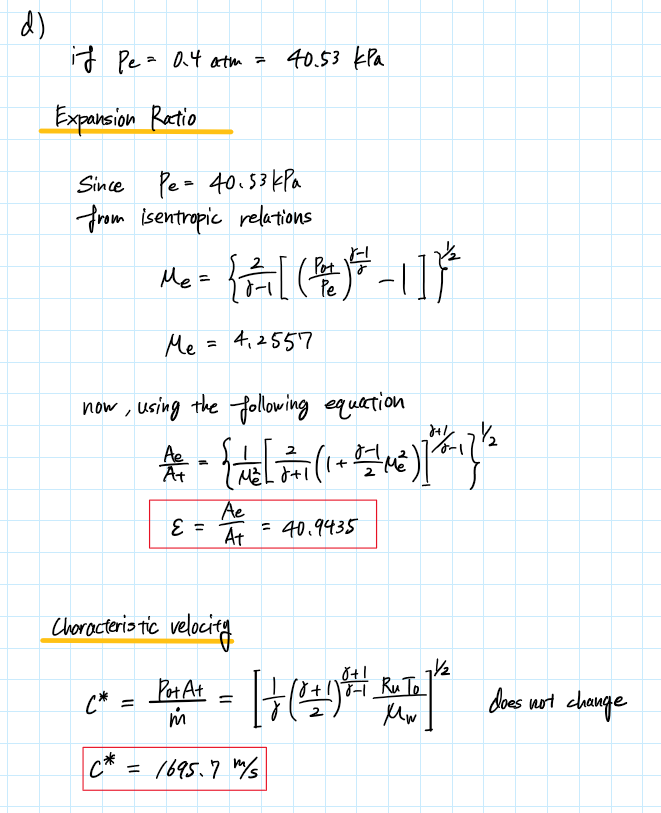 d)
if Pe = 0.4 atm = 40.53 kPa
Expansion Ratio
Since Pe = 40.53 kPa
from isentropic relations
Me = {2/(γ-1) [(Pot/Pe)^((γ-1)/γ) - 1]}^(1/2)
Me = 4.2557
now, using the following equation
Ae/At = {1/Me² [2/(γ+1) (1 + (γ-1)/2 Me²)]^((γ+1)/(γ-1))}^(1/2)
ε = Ae/At = 40.9435
Characteristic velocity
C* = Pot At/ṁ = [1/γ ((γ+1)/2)^((γ+1)/(γ-1)) Ru To/Mw]^(1/2) does not change
C* = 1695.7 m/s